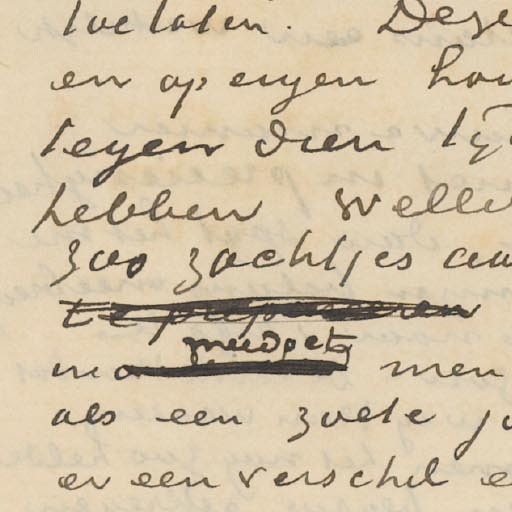 toelaten. Deze
en op eigen hou
tegen dien tij
hebben welli
zoo zachtjes aa
te prepareeren
men
als een zoete j
er een verschil e